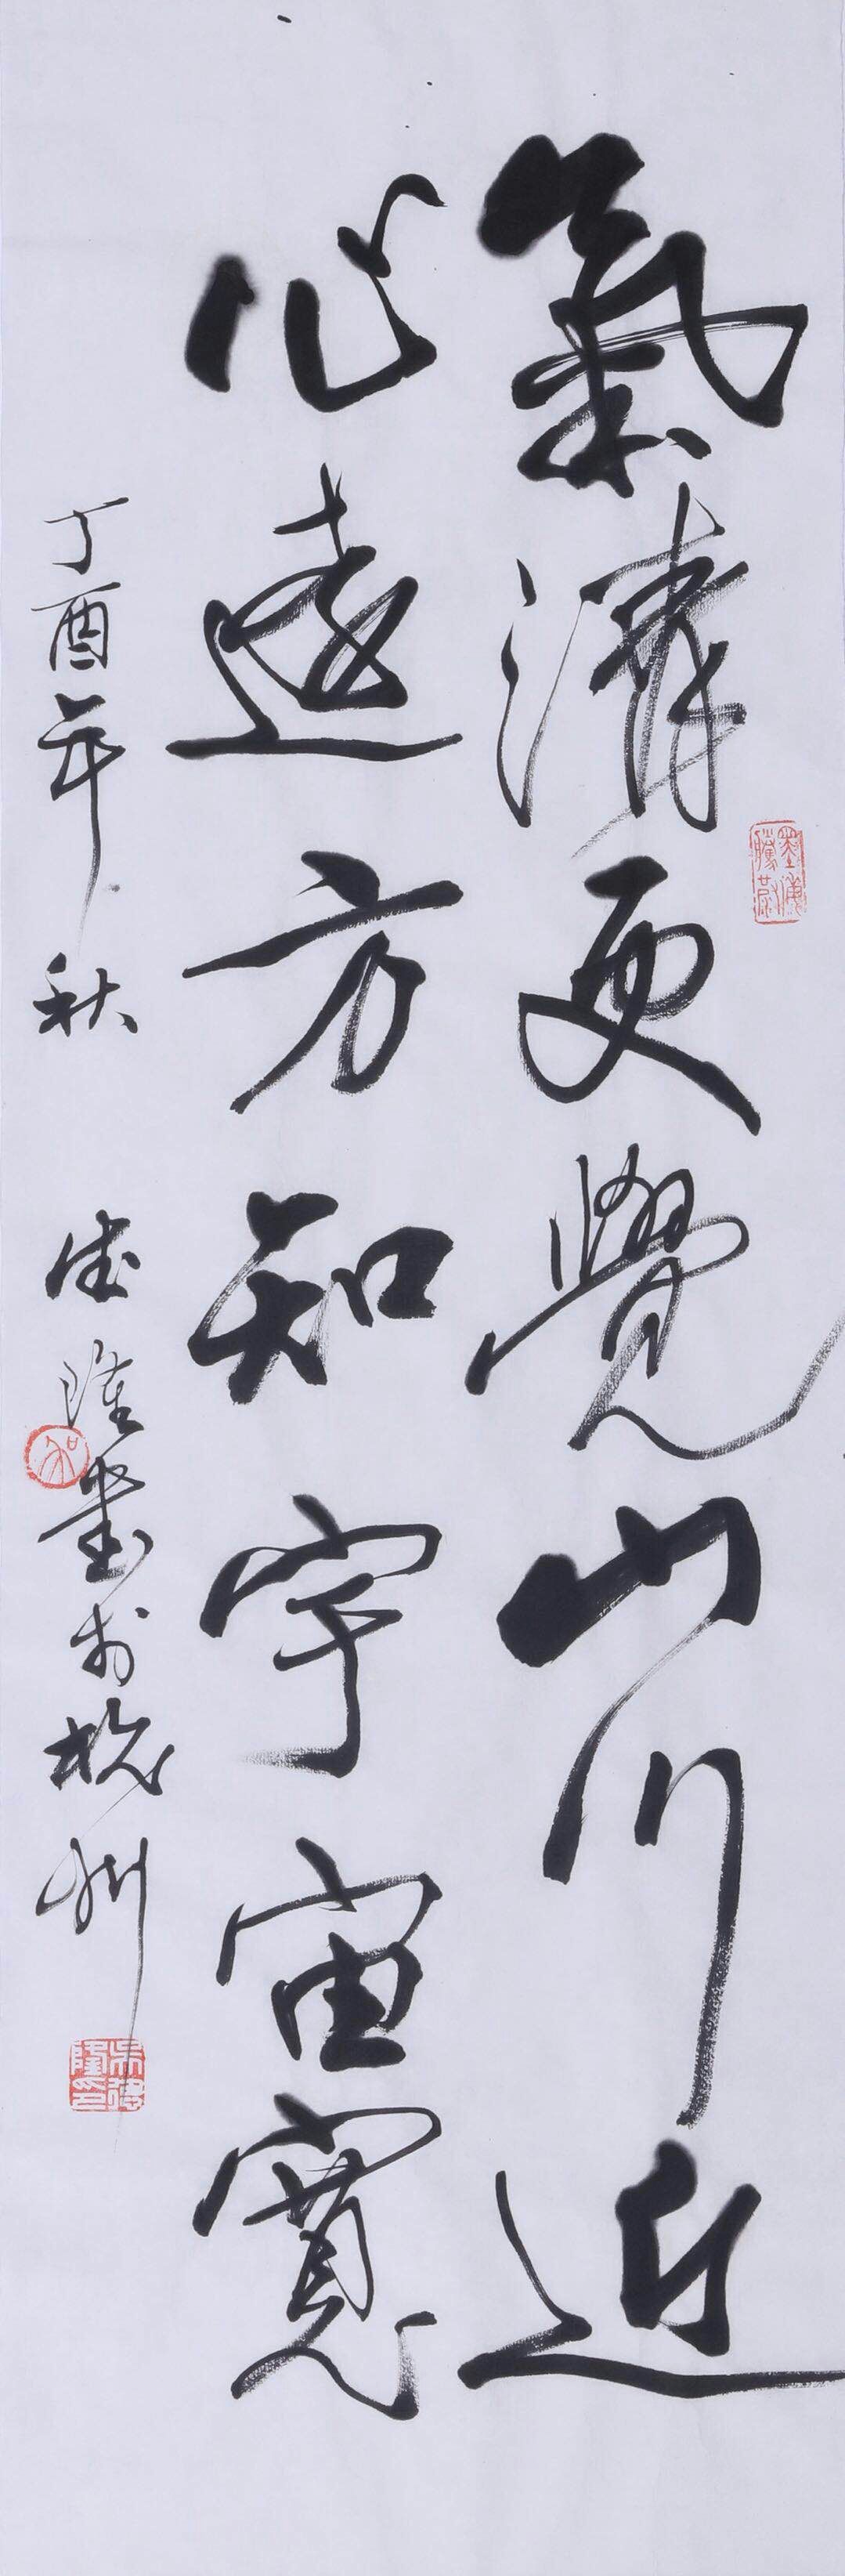 氣清更覺山川近
心遠方知宇宙寬
丁酉年秋 德隆書於杭州